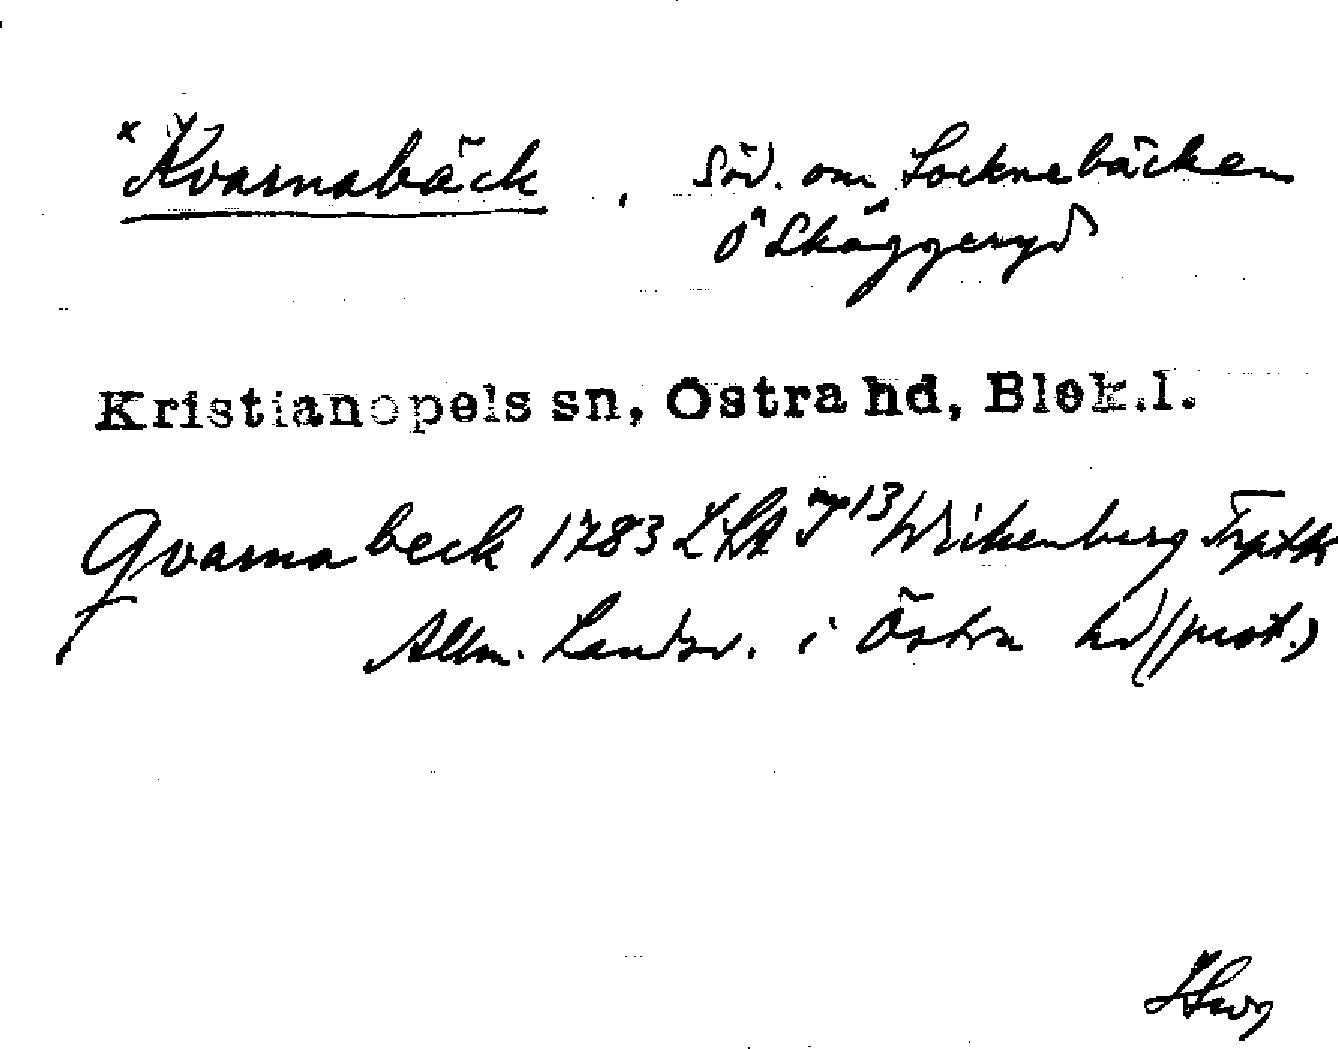 × Kvarnabäck, Söd. om Locknebäcken
Ö Skäggeryd
Kristianopels sn, Östra hd, Blek.l.
Qvarnabeck 1783 LSA 13 Wikenberg
Allm. Landsv. i Östra hd (prot.)